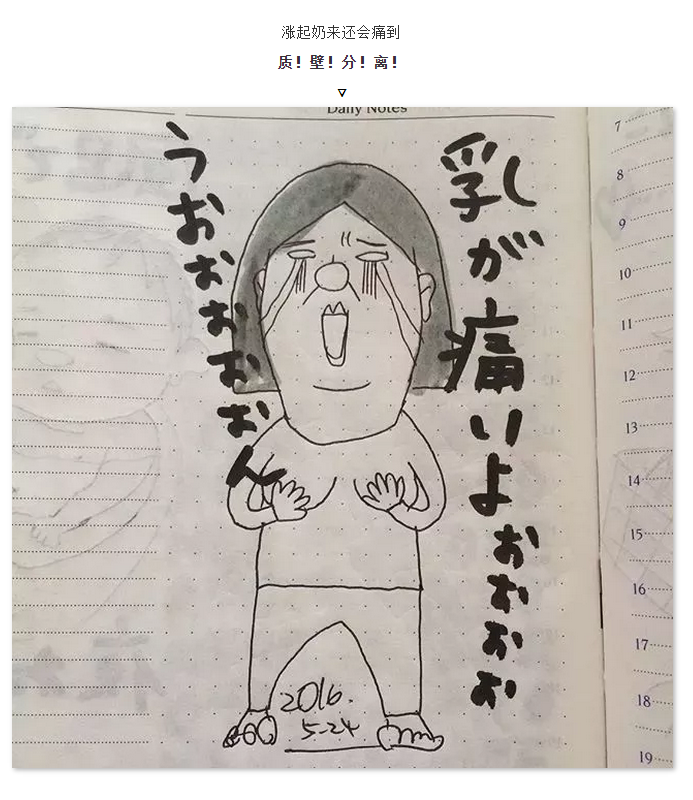 涨起奶来还会痛到
质！壁！分！离！
Daily Notes
乳が痛いよおおおお
うおおおおおん
2016.
5-24
7
8
9
10
11
12
13
14
15
16
17
18
19